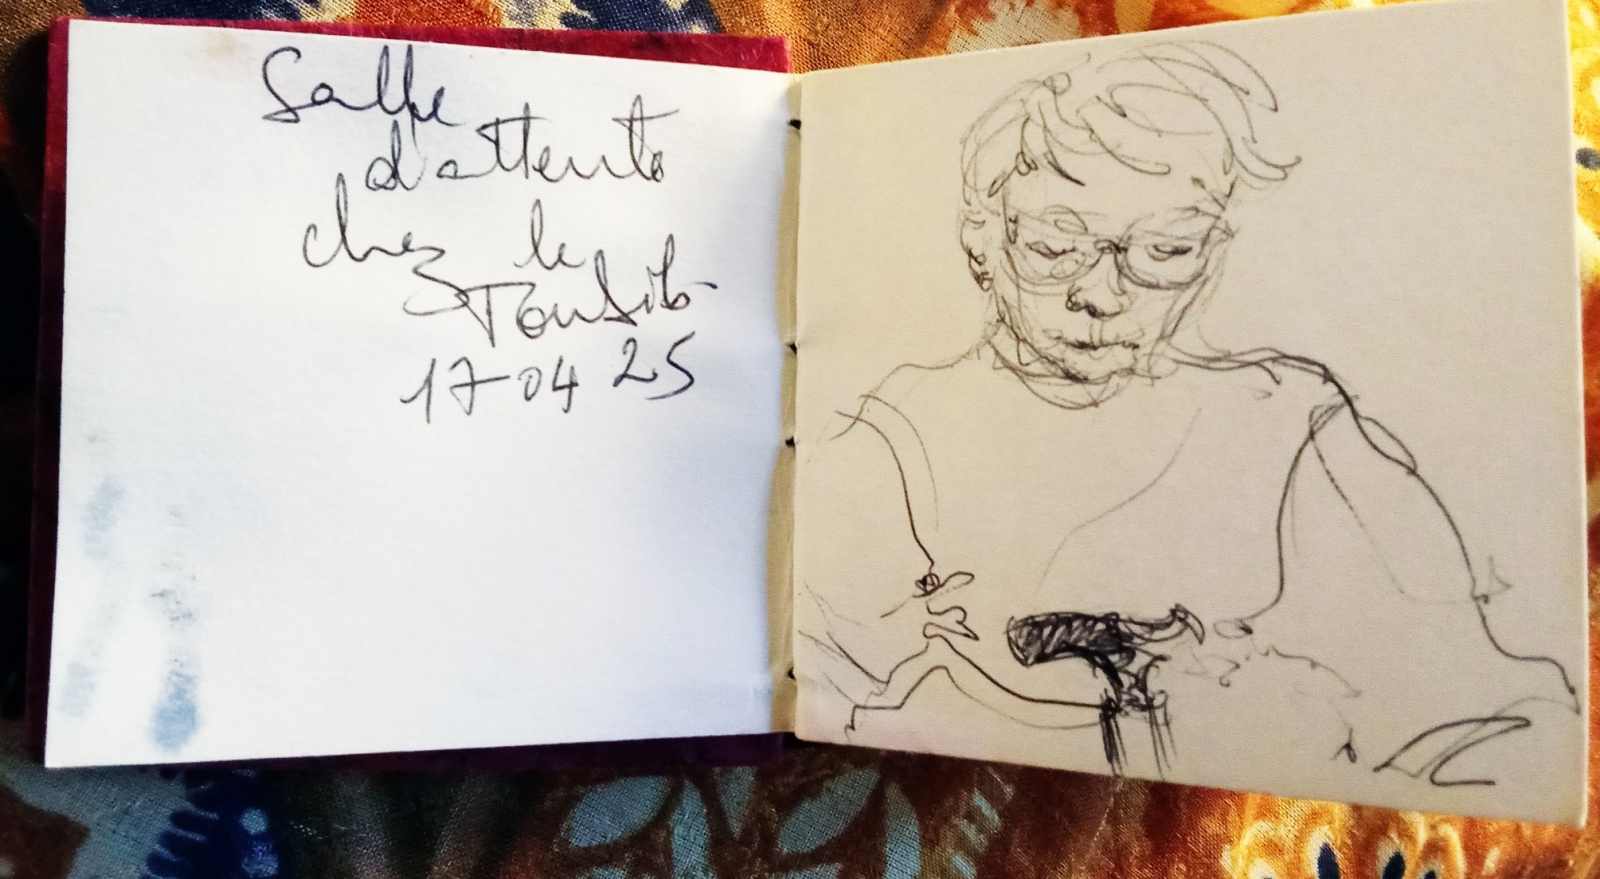 Salle
d'attente
chez le
17-04 25